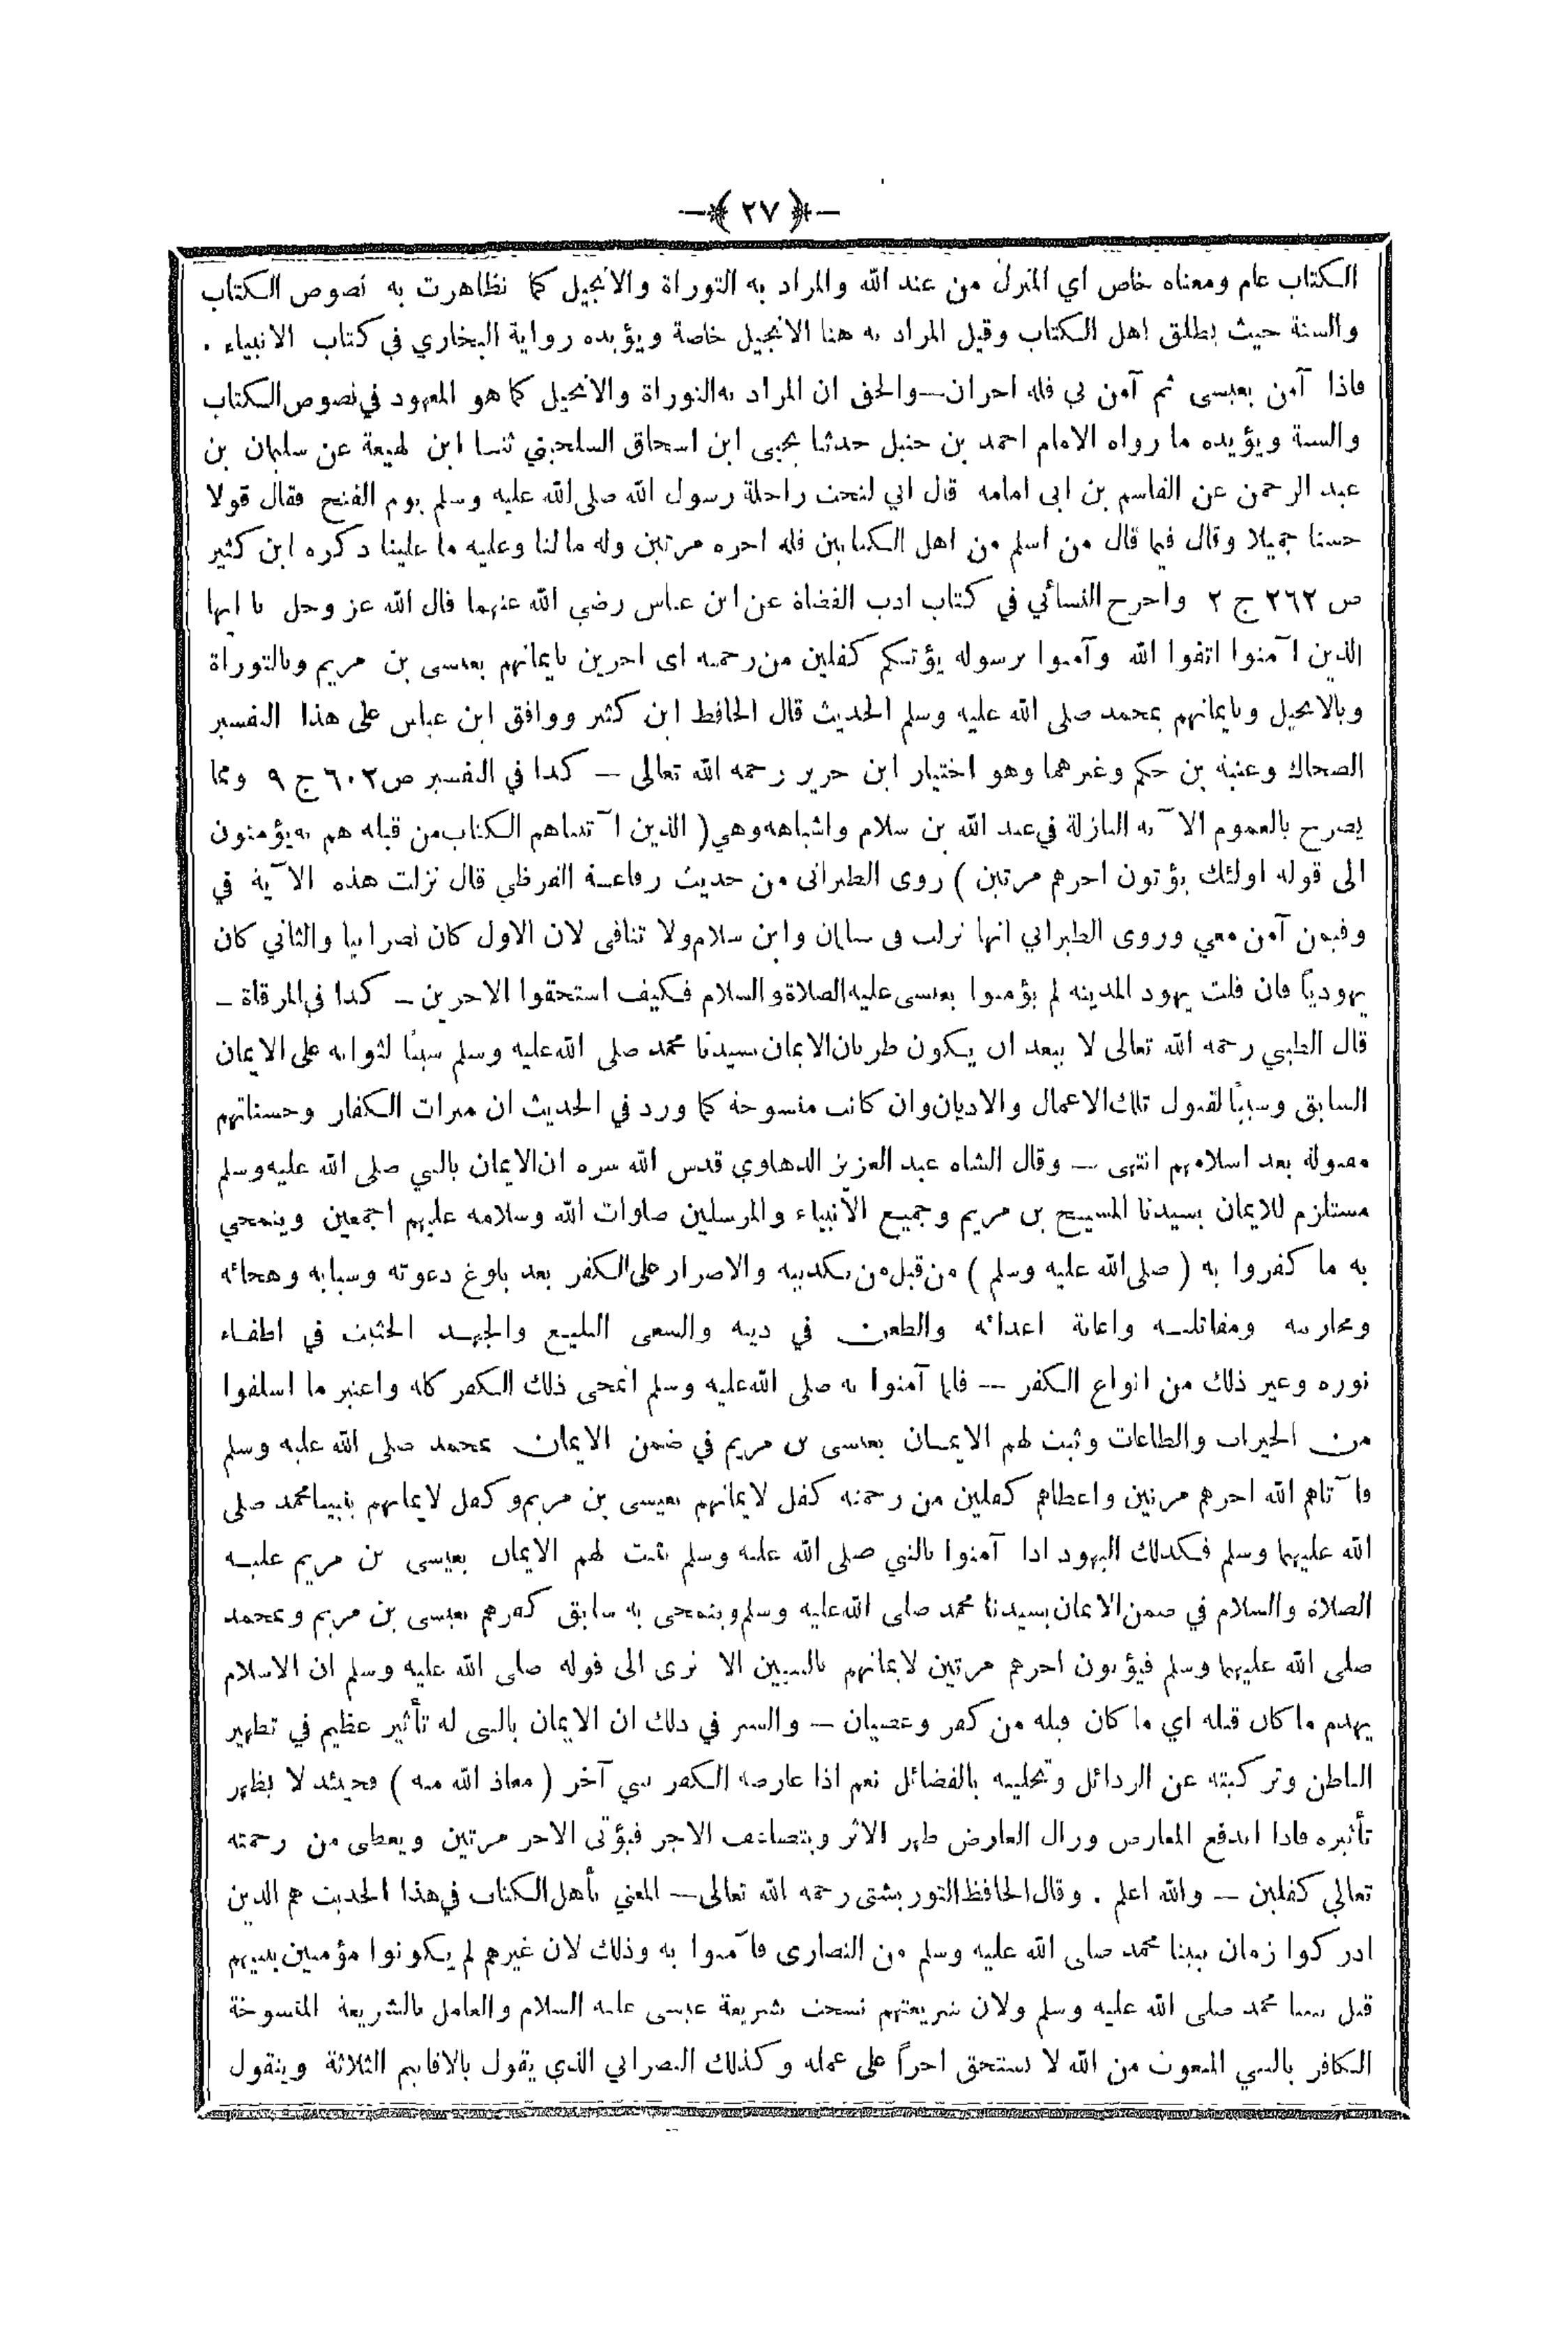 ﴿ ٢٧ ﴾
الكتاب عام ومعناه خاص اي المنزل من عند الله والمراد به التوراة والانجيل كما تظاهرت به نصوص الكتاب
والسنة حيث يطلق اهل الكتاب وقيل المراد به هنا الانجيل خاصة ويؤيده رواية البخاري في كتاب الانبياء .
فاذا آمن بعيسى ثم آمن بي فله اجران — والحق ان المراد به التوراة والانجيل كما هو المعهود في نصوص الكتاب
والسنة ويؤيده ما رواه الامام احمد بن حنبل حدثنا يحيى ابن اسحاق السلحيني ثنا ابن لهيعة عن سليمان بن
عبد الرحمن عن القاسم بن ابى امامه قال اني لتحت راحلة رسول الله صلى الله عليه وسلم يوم الفتح فقال قولا
حسنا جميلا وقال فيما قال من اسلم من اهل الكتابين فله اجره مرتين وله ما لنا وعليه ما علينا ذكره ابن كثير
ص ٢٦٢ ج ٢ واخرج النسائي في كتاب ادب القضاة عن ابن عباس رضي الله عنهما قال الله عز وجل يا ايها
الذين آمنوا اتقوا الله وآمنوا برسوله يؤتكم كفلين من رحمته اى اجرين بايمانهم بعيسى بن مريم وبالتوراة
وبالانجيل وبايمانهم بمحمد صلى الله عليه وسلم الحديث قال الحافظ ابن كثير ووافق ابن عباس على هذا التفسير
الضحاك وعتبة بن حكيم وغيرهما وهو اختيار ابن جرير رحمه الله تعالى — كذا في التفسير ص ٦٠٢ ج ٩ ومما
يصرح بالعموم الآية النازلة في عبد الله بن سلام واشباهه وهي ( الذين آتيناهم الكتاب من قبله هم به يؤمنون
الى قوله اولئك يؤتون اجرهم مرتين ) روى الطبرانى من حديث رفاعة القرظي قال نزلت هذه الآية في
وفيمن آمن معي وروى الطبراني انها نزلت في سلمان وابن سلام ولا تنافى لان الاول كان نصرانيا والثاني كان
يهودياً فان قلت يهود المدينه لم يؤمنوا بعيسى عليه الصلاة والسلام فكيف استحقوا الاجرين — كذا في المرقاة —
قال الطيبي رحمه الله تعالى لا يبعد ان يكون طريان الايمان بسيدنا محمد صلى الله عليه وسلم سبباً لثوابه على الايمان
السابق وسبباً لقبول تلك الاعمال والاديان وان كانت منسوخة كما ورد في الحديث ان مبرات الكفار وحسناتهم
مقبولة بعد اسلامهم انتهى — وقال الشاه عبد العزيز الدهلوي قدس الله سره ان الايمان بالنبي صلى الله عليه وسلم
مستلزم للايمان بسيدنا المسيح بن مريم وجميع الأنبياء والمرسلين صلوات الله وسلامه عليهم اجمعين وينمحي
به ما كفروا به ( صلى الله عليه وسلم ) من قبل من تكذيبه والاصرار على الكفر بعد بلوغ دعوته وسبابه وهجائه
ومحاربته ومقاتلته واعانة اعدائه والطعن في دينه والسعى البليغ والجهد الحثيث في اطفاء
نوره وغير ذلك من انواع الكفر — فلما آمنوا به صلى الله عليه وسلم انمحى ذلك الكفر كله واعتبر ما اسلفوا
من الخيرات والطاعات وثبت لهم الايمان بعيسى بن مريم في ضمن الايمان بمحمد صلى الله عليه وسلم
فآتاهم الله اجرهم مرتين واعطاهم كفلين من رحمته كفل لايمانهم بعيسى بن مريم وكفل لايمانهم بنبينا محمد صلى
الله عليهما وسلم فكذلك اليهود اذا آمنوا بالنبي صلى الله عليه وسلم ثبت لهم الايمان بعيسى بن مريم عليه
الصلاة والسلام في ضمن الايمان بسيدنا محمد صلى الله عليه وسلم وينمحى به سابق كفرهم بعيسى بن مريم وبمحمد
صلى الله عليهما وسلم فيؤتون اجرهم مرتين لايمانهم بالنبيين الا ترى الى قوله صلى الله عليه وسلم ان الاسلام
يهدم ما كان قبله اي ما كان قبله من كفر وعصيان — والسر في ذلك ان الايمان بالنبي له تأثير عظيم في تطهير
الباطن وتزكيته عن الرذائل وتحليته بالفضائل نعم اذا عارضه الكفر بنبي آخر ( معاذ الله منه ) فحينئذ لا يظهر
تأثيره فاذا اندفع المعارض وزال العارض ظهر الاثر ويتضاعف الاجر فيؤتى الاجر مرتين ويعطى من رحمته
تعالي كفلين — والله اعلم . وقال الحافظ التوربشتي رحمه الله تعالى — المعني بأهل الكتاب في هذا الحديث هم الذين
ادركوا زمان نبينا محمد صلى الله عليه وسلم من النصارى فآمنوا به وذلك لان غيرهم لم يكونوا مؤمنين بنبيهم
قبل نبينا محمد صلى الله عليه وسلم ولان شريعتهم نسخت بشريعة عيسى عليه السلام والعامل بالشريعة المنسوخة
الكافر بالنبي المبعوث من الله لا يستحق اجراً على عمله وكذلك النصراني الذي يقول بالاقانيم الثلاثة ويتقول